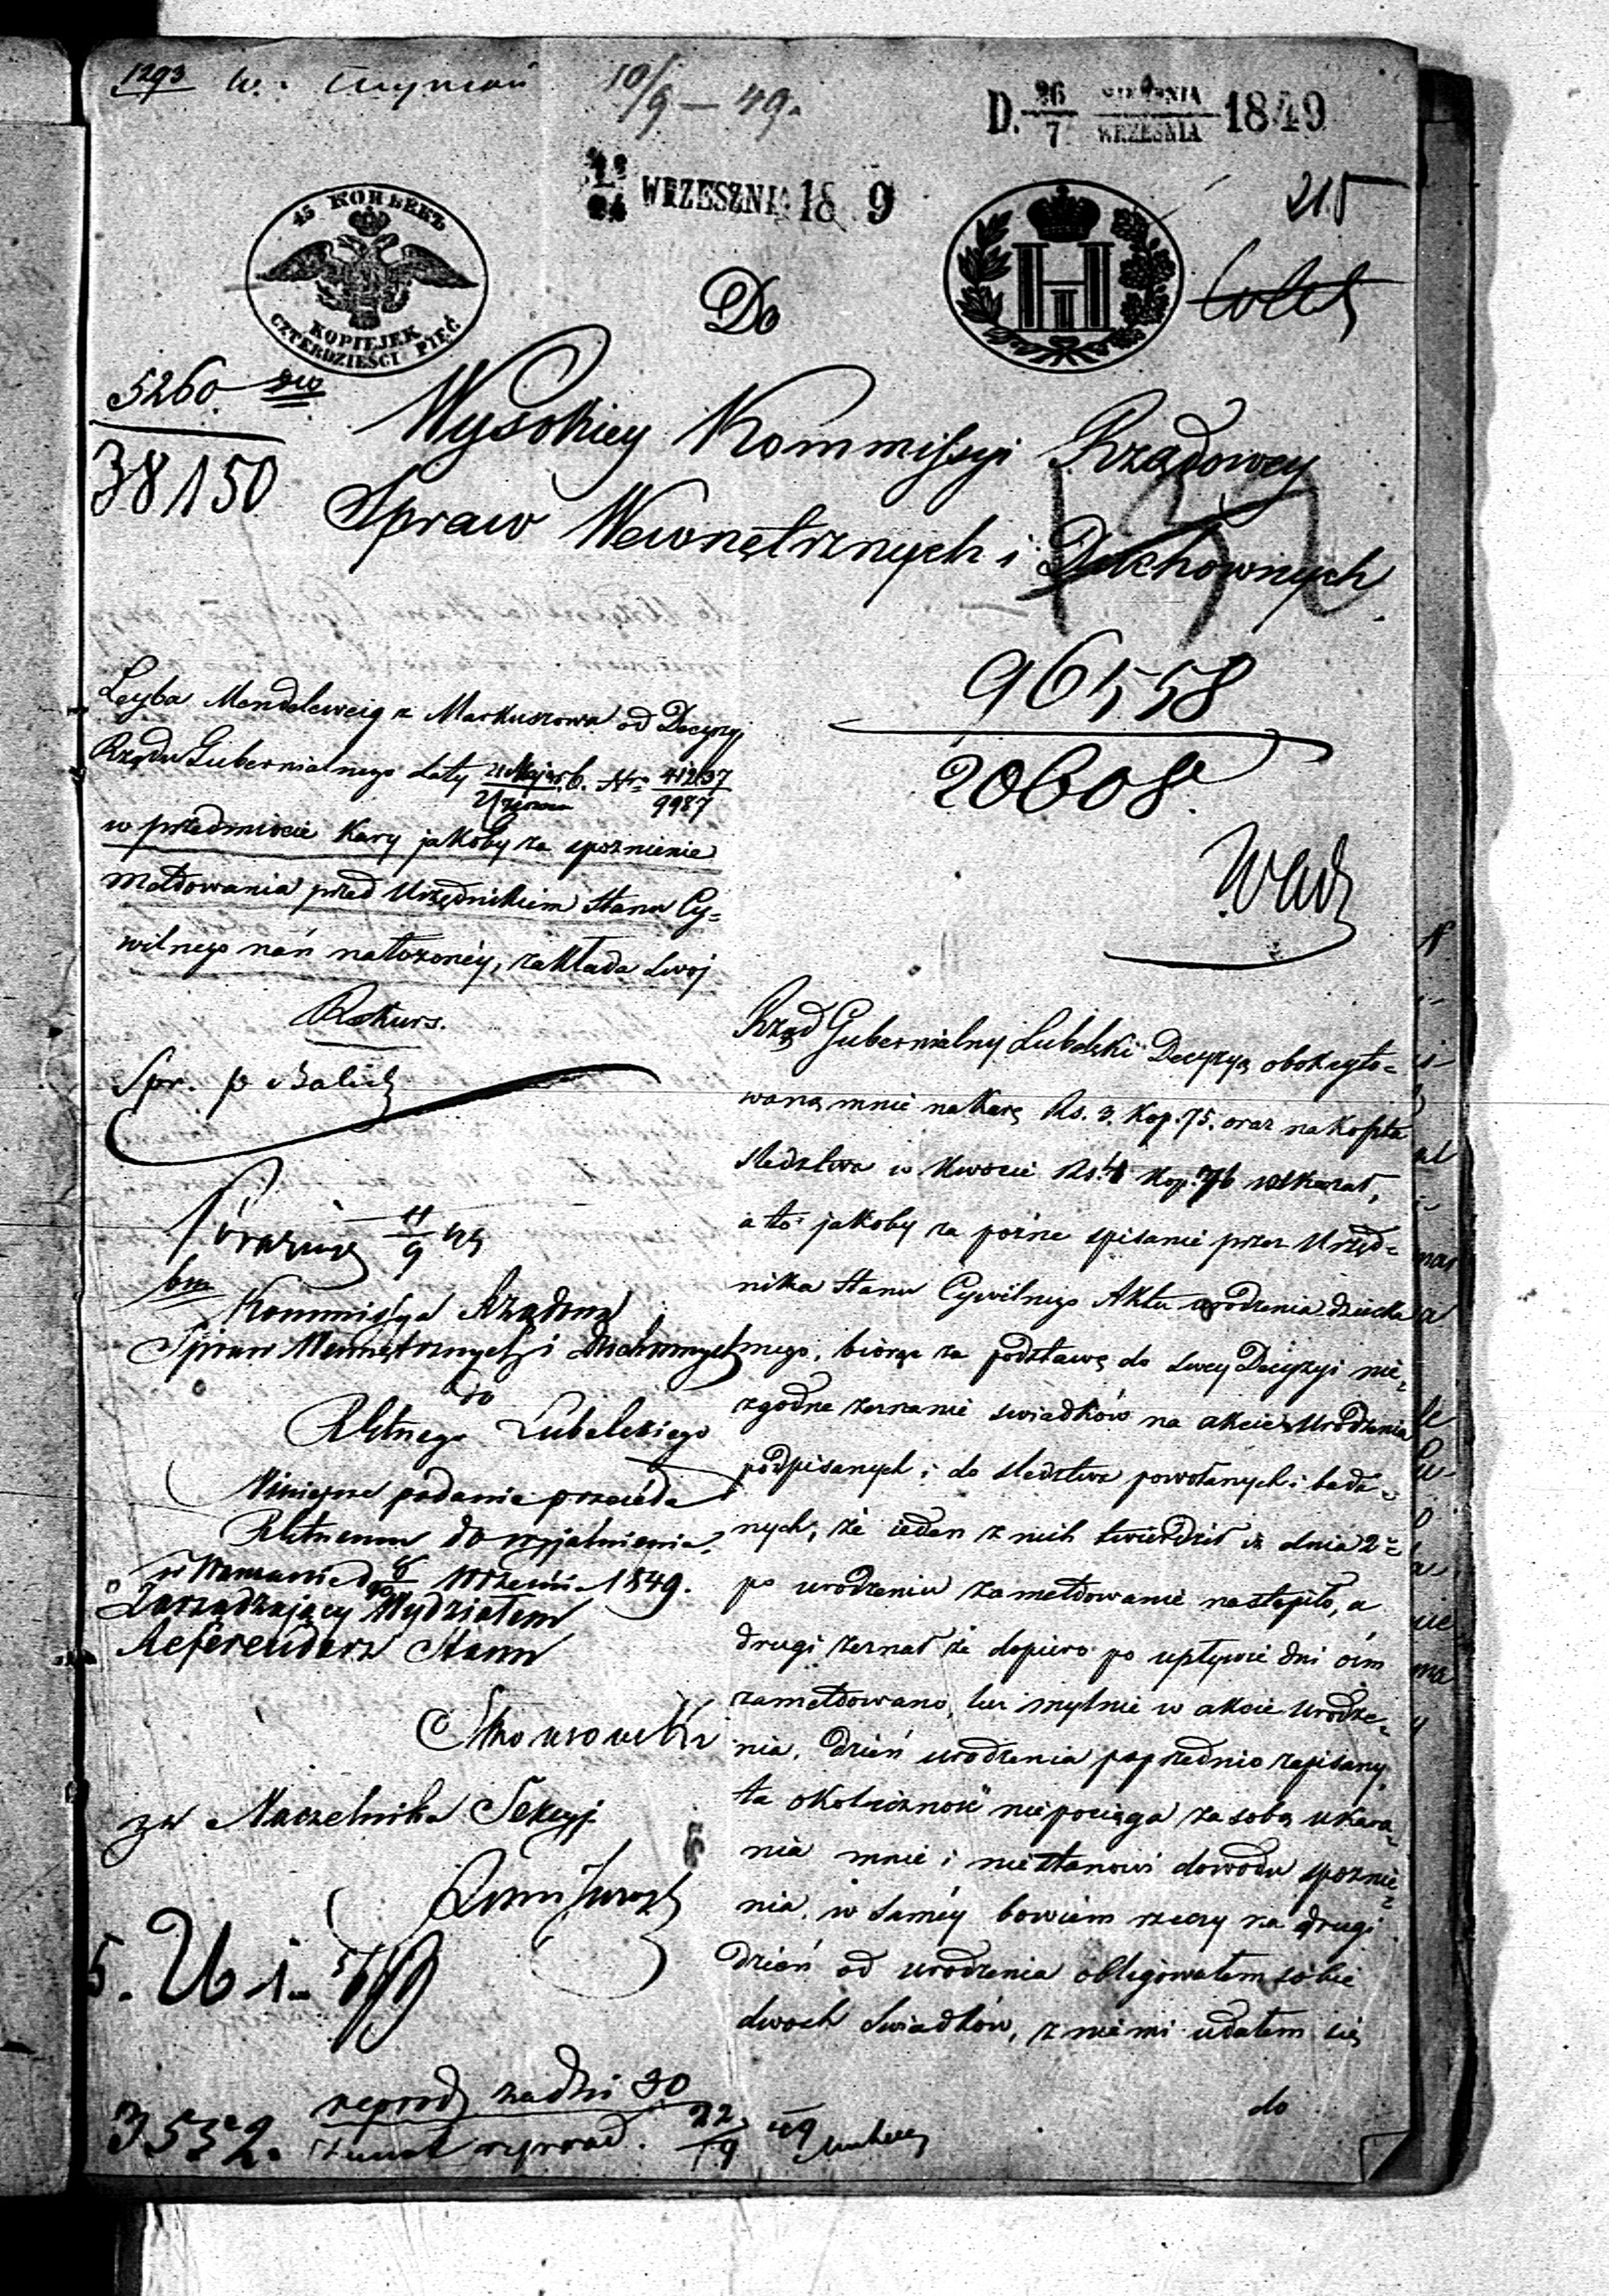 1293
10/9 – 49.
D. 26/7 SIERPNIA/WRZEŚNIA 1849
WRZESZNIA 18 9
215
45 KOP.
KOPIEJEK
CZTERDZIEŚCI PIĘĆ
Do
5260
38150
Wysokiey Kommissyi Rządowey
Spraw Wewnętrznych i Duchownych
132
96558
20608
Leyba Mendelcweig z Markuszowa od Decyzyi
Rządu Gubernialnego daty r. b. Nro 41237/9987
w przedmiocie Kary jakoby za spoznienie
meldowania przed Urzędnikiem Stanu Cy=
wilnego nań nałożoney, zakłada swoj
Rekurs.
Spr. p.
11/9 49
Kommissya Rządowa
Spraw Wewnętrznych i Duchownych
do
Rządu Gubernialnego Lubelskiego
Niniejsze podanie przesyła
do wyjaśnienia.
w Warszawie d. Września 1849.
Zarządzający Wydziałem
Referendarz Stanu
zw Naczelnika Sekcyi
Rząd Gubernialny Lubelski Decyzyą obok cyto=
waną mnie na Karę Rs. 3. Kop. 75. oraz na koszta
sledztwa w kwocie Rs. 4 Kop. 76 wskazał,
a to jakoby za pozne spisanie przez Urzęd=
nika Stanu Cywilnego Aktu urodzenia dziecka
mego, biorąc za podstawę do swey Decyzyi nie=
zgodne zeznanie swiadków na akcie urodzenia
podpisanych i do sledztwa powołanych i bada=
nych, że ieden z nich twierdził iż dnia 2o
po urodzeniu zameldowanie nastąpiło, a
drugi zeznał że dopiero po upływie dni ośm
zameldowano, lecz mylnie w akcie urodze=
nia, dzień urodzenia poprzednio zapisany,
ta okoliczność niepociąga za sobą ukara=
nia mnie i niestanowi dowodu spoznie=
nia, w saméy bowiem rzeczy na drugi
dzień od urodzenia obligowałem sobie
dwoch swiadków, z niemi udałem się
do
3532.
za dni 30
22/9 49